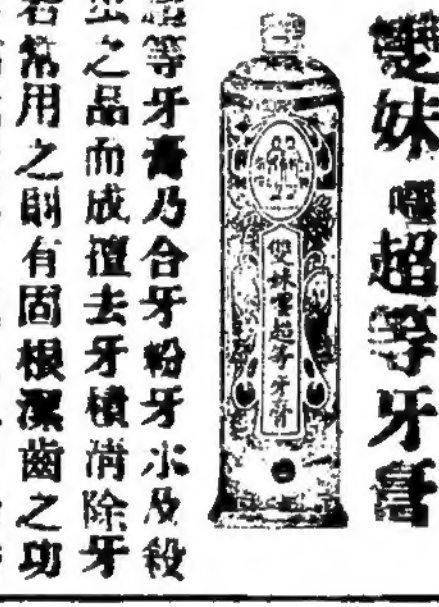 雙妹嚜超等牙膏
雙妹嚜超等牙膏
等牙膏乃合牙粉牙水及殺
虫之品而成擅去牙積清除牙
若常用之則有固根潔齒之功